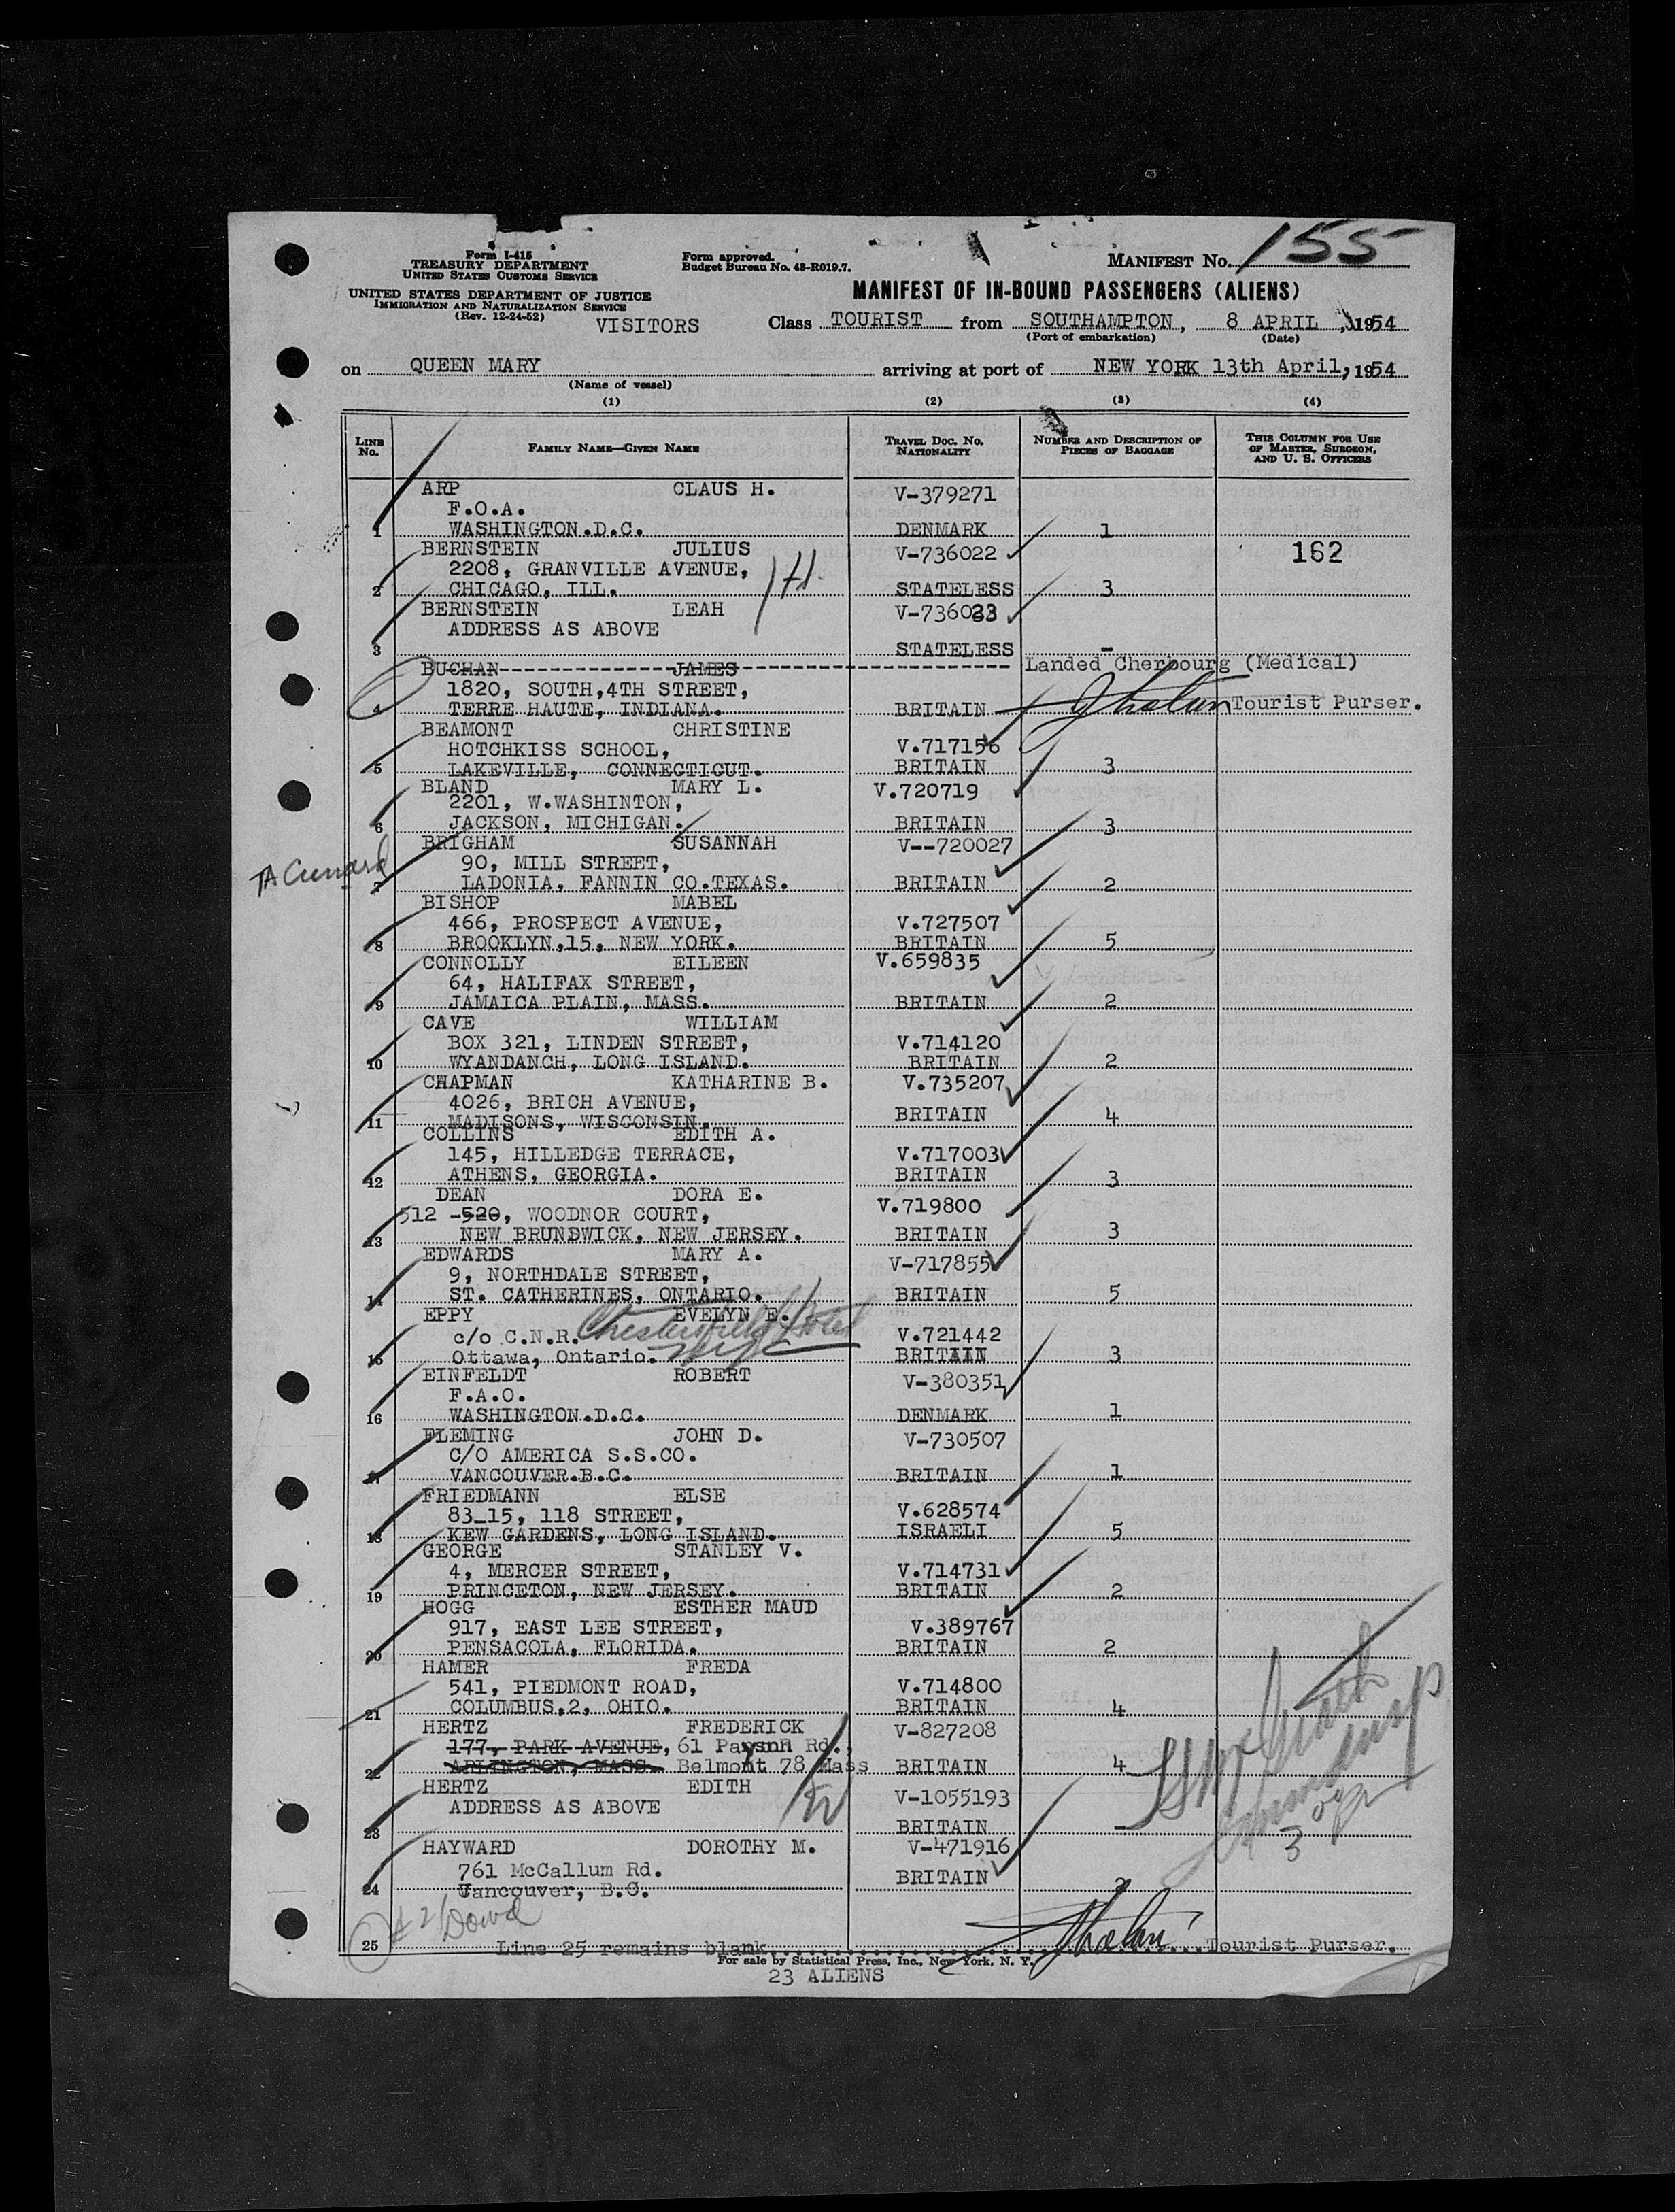 Form I-415
TREASURY DEPARTMENT
UNITED STATES CUSTOMS SERVICE
UNITED STATES DEPARTMENT OF JUSTICE
IMMIGRATION AND NATURALIZATION SERVICE
(Rev. 12-24-52)
VISITORS
Form approved.
Budget Bureau No. 43-R019.7.
MANIFEST No. 155
MANIFEST OF IN-BOUND PASSENGERS (ALIENS)
Class TOURIST from SOUTHAMPTON, 8 APRIL, 1954
(Port of embarkation) (Date)
on QUEEN MARY arriving at port of NEW YORK 13th April, 1954
(Name of vessel)
(1) (2) (3) (4)
LINE No. FAMILY NAME—GIVEN NAME TRAVEL DOC. No. NATIONALITY NUMBER AND DESCRIPTION OF PIECES OF BAGGAGE THIS COLUMN FOR USE OF MASTER, SURGEON, AND U. S. OFFICERS
ARP CLAUS H. V-379271
F.O.A.
1 WASHINGTON.D.C. DENMARK 1
BERNSTEIN JULIUS V-736022 162
2208, GRANVILLE AVENUE,
2 CHICAGO, ILL. STATELESS 3
BERNSTEIN LEAH V-736023
ADDRESS AS ABOVE
3 STATELESS -
BUCHAN JAMES Landed Cherbourg (Medical)
1820, SOUTH,4TH STREET,
4 TERRE HAUTE, INDIANA. BRITAIN Tourist Purser.
BEAMONT CHRISTINE
HOTCHKISS SCHOOL, V.717156
5 LAKEVILLE, CONNECTICUT. BRITAIN 3
BLAND MARY L. V.720719
2201, W.WASHINTON,
6 JACKSON, MICHIGAN. BRITAIN 3
BRIGHAM SUSANNAH V--720027
TA Cunard
90, MILL STREET,
7 LADONIA, FANNIN CO.TEXAS. BRITAIN 2
BISHOP MABEL
466, PROSPECT AVENUE, V.727507
8 BROOKLYN,15, NEW YORK. BRITAIN 5
CONNOLLY EILEEN V.659835
64, HALIFAX STREET,
9 JAMAICA PLAIN, MASS. BRITAIN 2
CAVE WILLIAM
BOX 321, LINDEN STREET, V.714120
10 WYANDANCH, LONG ISLAND. BRITAIN 2
CHAPMAN KATHARINE B. V.735207
4026, BRICH AVENUE,
11 MADISONS, WISCONSIN. BRITAIN 4
COLLINS EDITH A.
145, HILLEDGE TERRACE, V.717003
12 ATHENS, GEORGIA. BRITAIN 3
DEAN DORA E. V.719800
512 -520, WOODNOR COURT,
13 NEW BRUNDWICK, NEW JERSEY. BRITAIN 3
EDWARDS MARY A. V-717855
9, NORTHDALE STREET,
14 ST. CATHERINES, ONTARIO. BRITAIN 5
EPPY EVELYN E.
c/o C.N.R. Chesterfield Hotel V.721442
15 Ottawa, Ontario. NYC BRITAIN 3
EINFELDT ROBERT V-380351
F.A.O.
16 WASHINGTON.D.C. DENMARK 1
FLEMING JOHN D. V-730507
C/O AMERICA S.S.CO.
17 VANCOUVER.B.C. BRITAIN 1
FRIEDMANN ELSE
83_15, 118 STREET, V.628574
18 KEW GARDENS, LONG ISLAND. ISRAELI 5
GEORGE STANLEY V.
4, MERCER STREET, V.714731
19 PRINCETON, NEW JERSEY. BRITAIN 2
HOGG ESTHER MAUD
917, EAST LEE STREET, V.389767
20 PENSACOLA, FLORIDA. BRITAIN 2
HAMER FREDA
541, PIEDMONT ROAD, V.714800
21 COLUMBUS,2, OHIO. BRITAIN 4
HERTZ FREDERICK V-827208
177, PARK AVENUE, 61 Rd.,
22 ARLINGTON, MASS. Belmont 78 Mass BRITAIN 4
HERTZ EDITH V-1055193
ADDRESS AS ABOVE
23 BRITAIN -
HAYWARD DOROTHY M. V-471916
761 McCallum Rd. BRITAIN
24 Vancouver, B.C. 2
25 Line 25 remains blank. Tourist Purser.
For sale by Statistical Press, Inc., New York, N. Y.
23 ALIENS